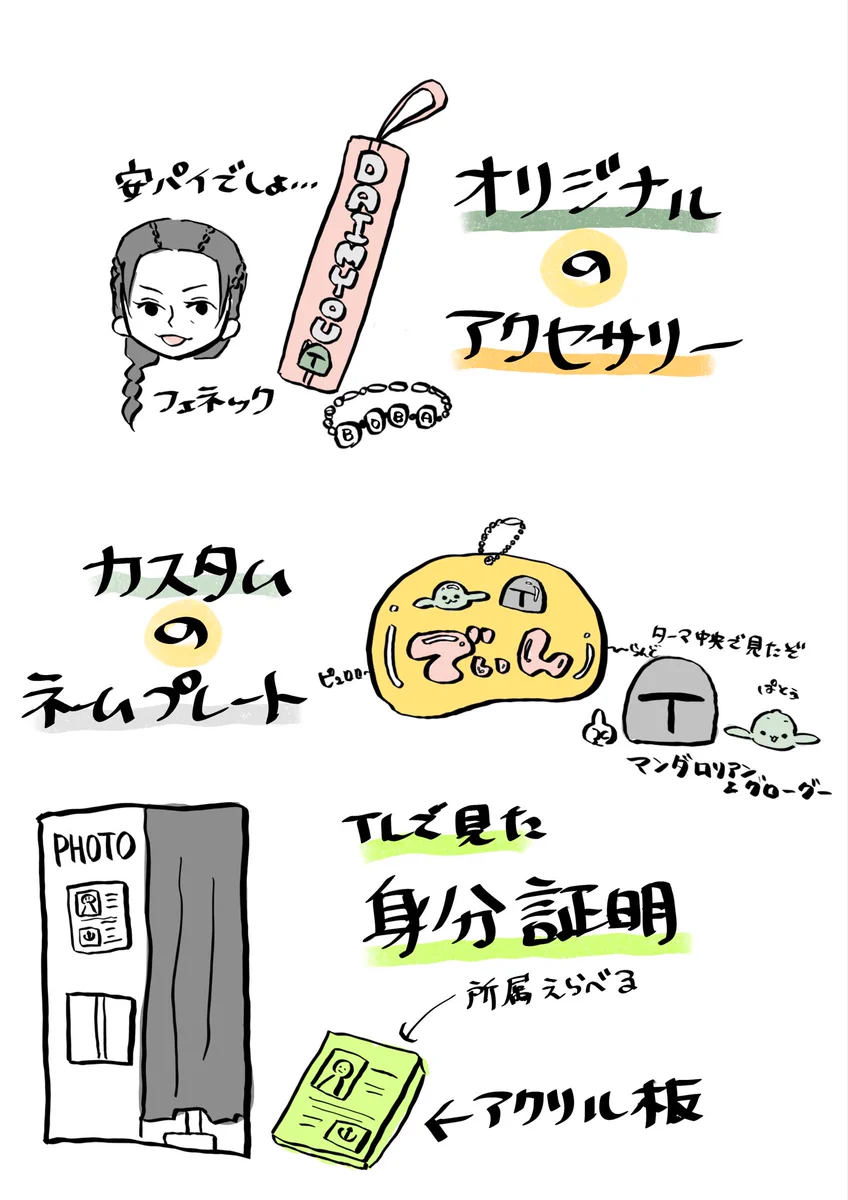 安パイでしょ…
DAIMYOU
オリジナル
の
アクセサリー
フェネック
BOBA
カスタム
の
ネームプレート
でぃん
ピュロロロ〜
ターマ中央で見たぞ
ぱとぅ
マンダロリアン
とグローグー
PHOTO
TLで見た
身分証明
所属えらべる
←アクリル板